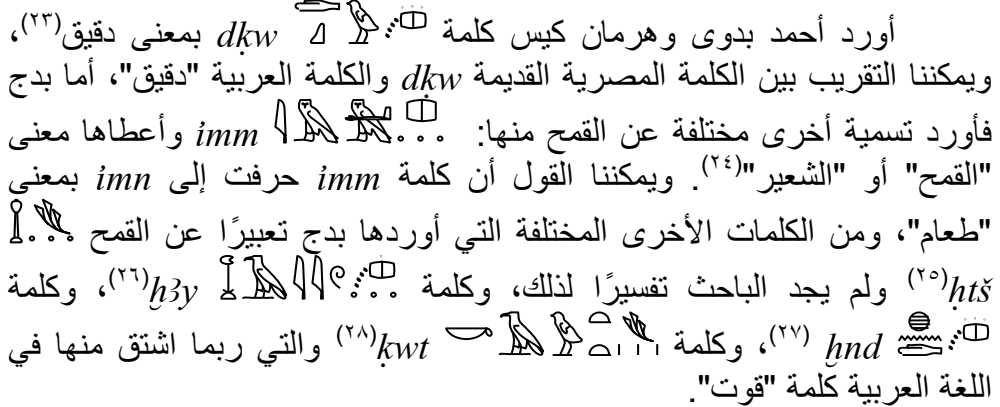 أورد أحمد بدوى وهرمان كيس كلمة dḳw بمعنى دقيق(٢٣)،
ويمكننا التقريب بين الكلمة المصرية القديمة dḳw والكلمة العربية "دقيق"، أما بدج
فأورد تسمية أخرى مختلفة عن القمح منها: imm وأعطاها معنى
"القمح" أو "الشعير"(٢٤). ويمكننا القول أن كلمة imm حرفت إلى imn بمعنى
"طعام"، ومن الكلمات الأخرى المختلفة التي أوردها بدج تعبيرًا عن القمح
ḥtš(٢٥) ولم يجد الباحث تفسيرًا لذلك، وكلمة ḫ3y(٢٦)، وكلمة
ḫnd (٢٧)، وكلمة kwt(٢٨) والتي ربما اشتق منها في
اللغة العربية كلمة "قوت".